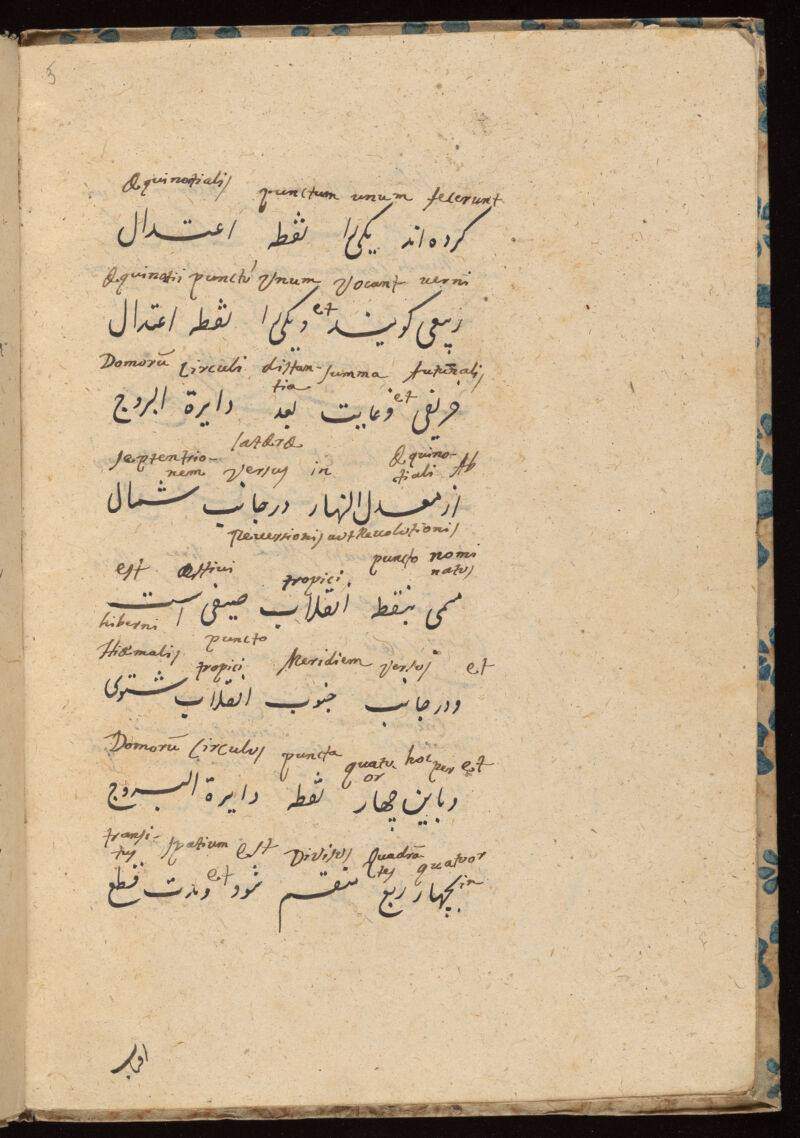 5
Æquinoctialis punctum unum fecerunt
کرده‌اند یکی را نقطه اعتدال
Æquinoctii punctū Unum vocant verni
ربیعی کویند et ویکی را نقطه اعتدال
Domorū Circuli distan- summa Autūnalis
tia et
خریفی وغایت بعد دایرة البروج
latere
septentrio- versus in Æquino- Ab
nem tiali
از معدل النهار در جانب شمال
Reversionis aut Revolutionis
est æstivi tropici puncto nomi
natus
مسمی بنقط انقلاب صیفی است
hiberni puncto
Hiemalis tropici Meridiem versus et
ودر جانب جنوب انقلاب شتوی
Domorū Circulus puncta quatu hoc per est
or
وباین چهار نقطه دایرة البروج
transi- spatium est Divisus Quadrā quatuor
tus et tus in
بچهار ربع منقسم شود ومدت قطع